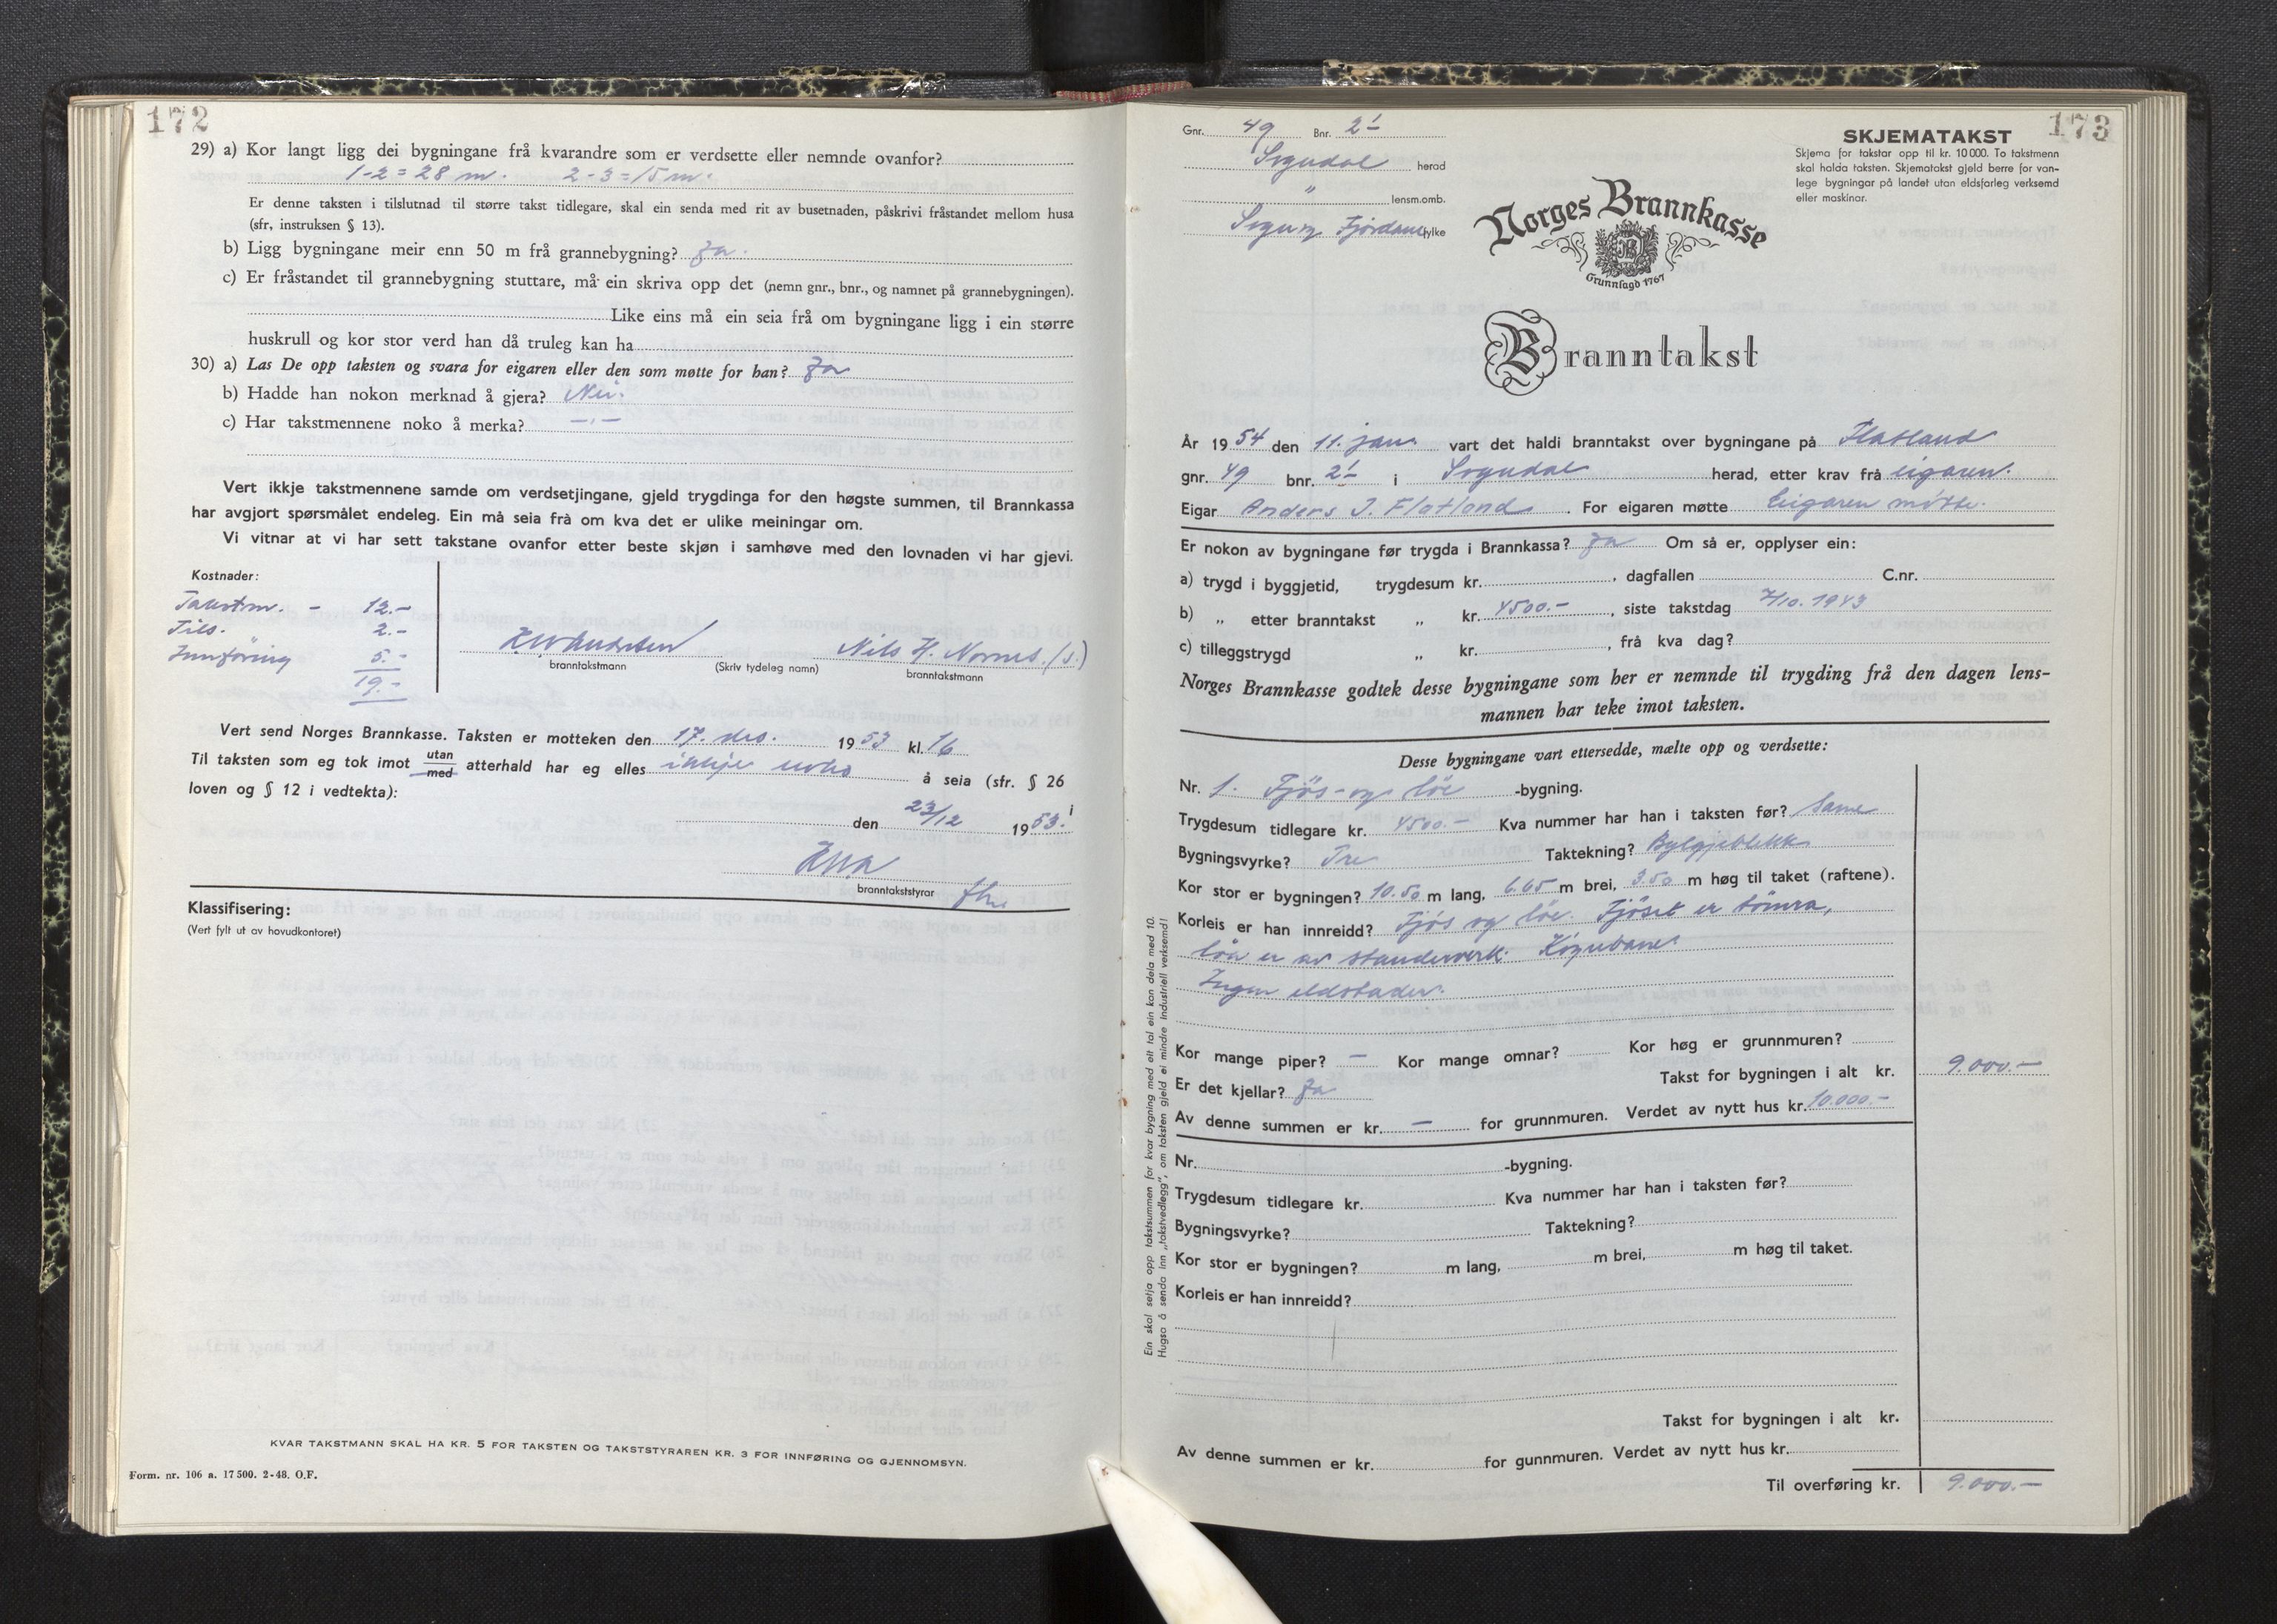 172
29) a) Kor langt ligg dei bygningane frå kvarandre som er verdsette eller nemnde ovanfor?
1-2 = 28 m. 2-3 = 15 m.
Er denne taksten i tilslutnad til større takst tidlegare, skal ein senda med rit av busetnaden, påskrivi fråstandet mellom husa
(sfr, instruksen § 13).
b) Ligg bygningane meir enn 50 m frå grannebygning? Ja.
c) Er fråstandet til grannebygning stuttare, må ein skriva opp det (nemn gnr., bnr., og namnet på grannebygningen).
Like eins må ein seia frå om bygningane ligg i ein større
huskrull og kor stor verd han då truleg kan ha
30) a) Las De opp taksten og svara for eigaren eller den som møtte for han? Ja
b) Hadde han nokon merknad å gjera? Nei.
c) Har takstmennene noko å merka? —„—
Vert ikkje takstmennene samde om verdsetjingane, gjeld trygdinga for den høgste summen, til Brannkassa
har avgjort spørsmålet endeleg. Ein må seia frå om kva det er ulike meiningar om.
Vi vitnar at vi har sett takstane ovanfor etter beste skjøn i samhøve med den lovnaden vi har gjevi.
Kostnader:
Takstm. - 12.-
Tils. 2.-
Innföring 5.-
19.-
Nils H. Nornes. (s.)
branntakstmann (Skriv tydeleg namn) branntakstmann
Vert send Norges Brannkasse. Taksten er motteken den 17. des. 1953 kl. 16
Til taksten som eg tok imot utan/med atterhald har eg elles inkje å seia (sfr. § 26
loven og § 12 i vedtekta):
den 23/12 1953.
branntakststyrar
Klassifisering:
(Vert fylt ut av hovudkontoret)
KVAR TAKSTMANN SKAL HA KR. 5 FOR TAKSTEN OG TAKSTSTYRAREN KR. 3 FOR INNFØRING OG GJENNOMSYN.
Form. nr. 106 a. 17500. 2-48. O.F.
173
Gnr. 49 Bnr. 2
Sogndal herad
" lensm.omb.
Sogn og Fjordane fylke
SKJEMATAKST
Skjema for takstar opp til kr. 10 000. To takstmenn
skal halda taksten. Skjematakst gjeld berre for van-
lege bygningar på landet utan eldsfarleg verksemd
eller maskinar.
Norges Brannkasse
Grunnlagd 1767
Branntakst
År 1954 den 11. jan. vart det haldi branntakst over bygningane på Flatland
gnr. 49 bnr. 2 i Sogndal herad, etter krav frå eigaren.
Eigar Anders J. Flatland. For eigaren møtte Eigaren møtte.
Er nokon av bygningane før trygda i Brannkassa? Ja Om så er, opplyser ein:
a) trygd i byggjetid, trygdesum kr. , dagfallen C.nr.
b) „ etter branntakst „ kr. 4500.- , siste takstdag 7/10. 1943
c) tilleggstrygd „ kr. , frå kva dag?
Norges Brannkasse godtek desse bygningane som her er nemnde til trygding frå den dagen lens-
mannen har teke imot taksten.
Desse bygningane vart ettersedde, mælte opp og verdsette:
Nr. 1. Fjös- og löe -bygning.
Trygdesum tidlegare kr. 4500.- Kva nummer har han i taksten før? Same
Bygningsvyrke? Tre Taktekning? Bylgjeblekk
Kor stor er bygningen? 10.50 m lang, 6.65 m brei, 3.50 m høg til taket (raftene).
Korleis er han innreidd? Fjös og löe. Fjöset er tömra,
löa er av standerverk. Köyrebane
Ingen eldstader.
Kor mange piper? — Kor mange omnar? Kor høg er grunnmuren?
Er det kjellar? Ja Takst for bygningen i alt kr. 9.000.-
Av denne summen er kr. — for grunnmuren. Verdet av nytt hus kr. 10.000.-
Nr. -bygning.
Trygdesum tidlegare kr. Kva nummer har han i taksten før?
Bygningsvyrke? Taktekning?
Kor stor er bygningen? m lang, m brei, m høg til taket.
Korleis er han innreidd?
Takst for bygningen i alt kr.
Av denne summen er kr. for gunnmuren. Verdet av nytt hus kr.
Til overføring kr. 9.000.-
Ein skal setja opp takstsummen for kvar bygning med eit tal ein kan dela med 10.
Hugsa å senda inn „takstvedlegg", om taksten gjeld ei mindre industriell verksemd!